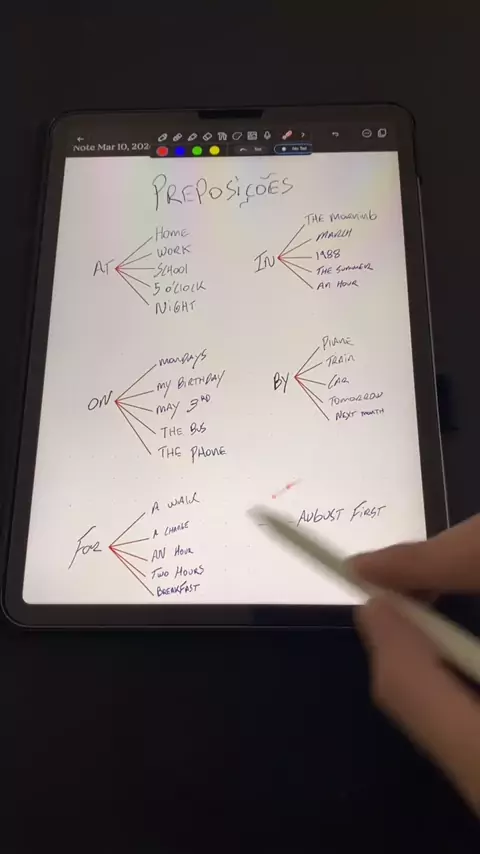 Note Mar 10, 202
PREPOSIÇÕES
AT
HOME
WORK
SCHOOL
5 O'CLOCK
NIGHT
IN
THE MORNING
MARCH
1988
THE SUMMER
AN HOUR
ON
MONDAYS
MY BIRTHDAY
MAY 3RD
THE BUS
THE PHONE
BY
PLANE
TRAIN
CAR
TOMORROW
NEXT MONTH
FOR
A WALK
A CHANGE
AN HOUR
TWO HOURS
BREAKFAST
AUGUST FIRST